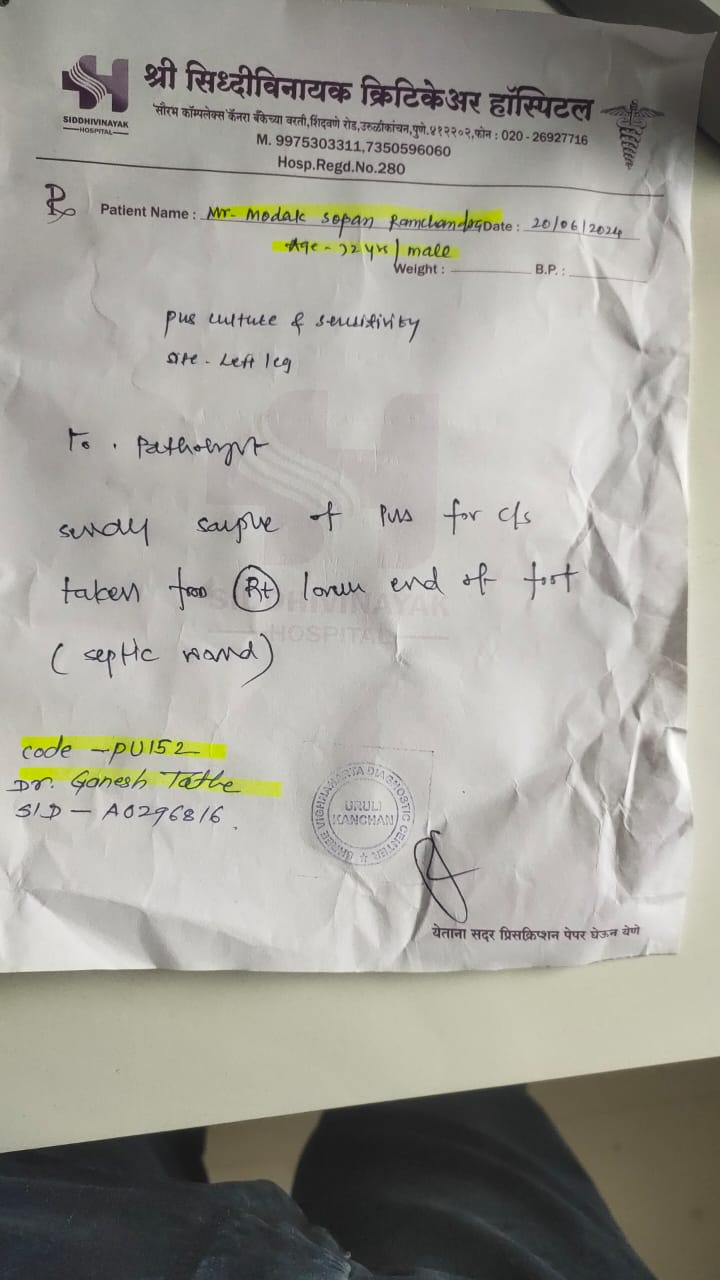 SIDDHIVINAYAK
HOSPITAL
श्री सिध्दीविनायक क्रिटिकेअर हॉस्पिटल
सौरभ कॉम्प्लेक्स कॅनरा बँकेच्या वरती,शिंदवणे रोड,उरुळीकांचन,पुणे.४१२२०२,फोन : 020 - 26927716
M. 9975303311,7350596060
Hosp.Regd.No.280
Patient Name : Mr. Modak Sopan Ramchandra Date : 20/06/2024
Age - yrs / male
Weight : B.P. :
pus culture & sensitivity
site - Left leg
To. Pathologist
sample of pus for c/s
taken from Rt lower end of foot
(septic wound)
SIDDHIVINAYAK
HOSPITAL
code - PU152
Dr. Ganesh Tathe
SID - A0296816
SHREE VIGHNAHARTA DIAGNOSTIC CENTER
URULI
KANCHAN
येताना सदर प्रिसक्रिप्शन पेपर घेऊन येणे